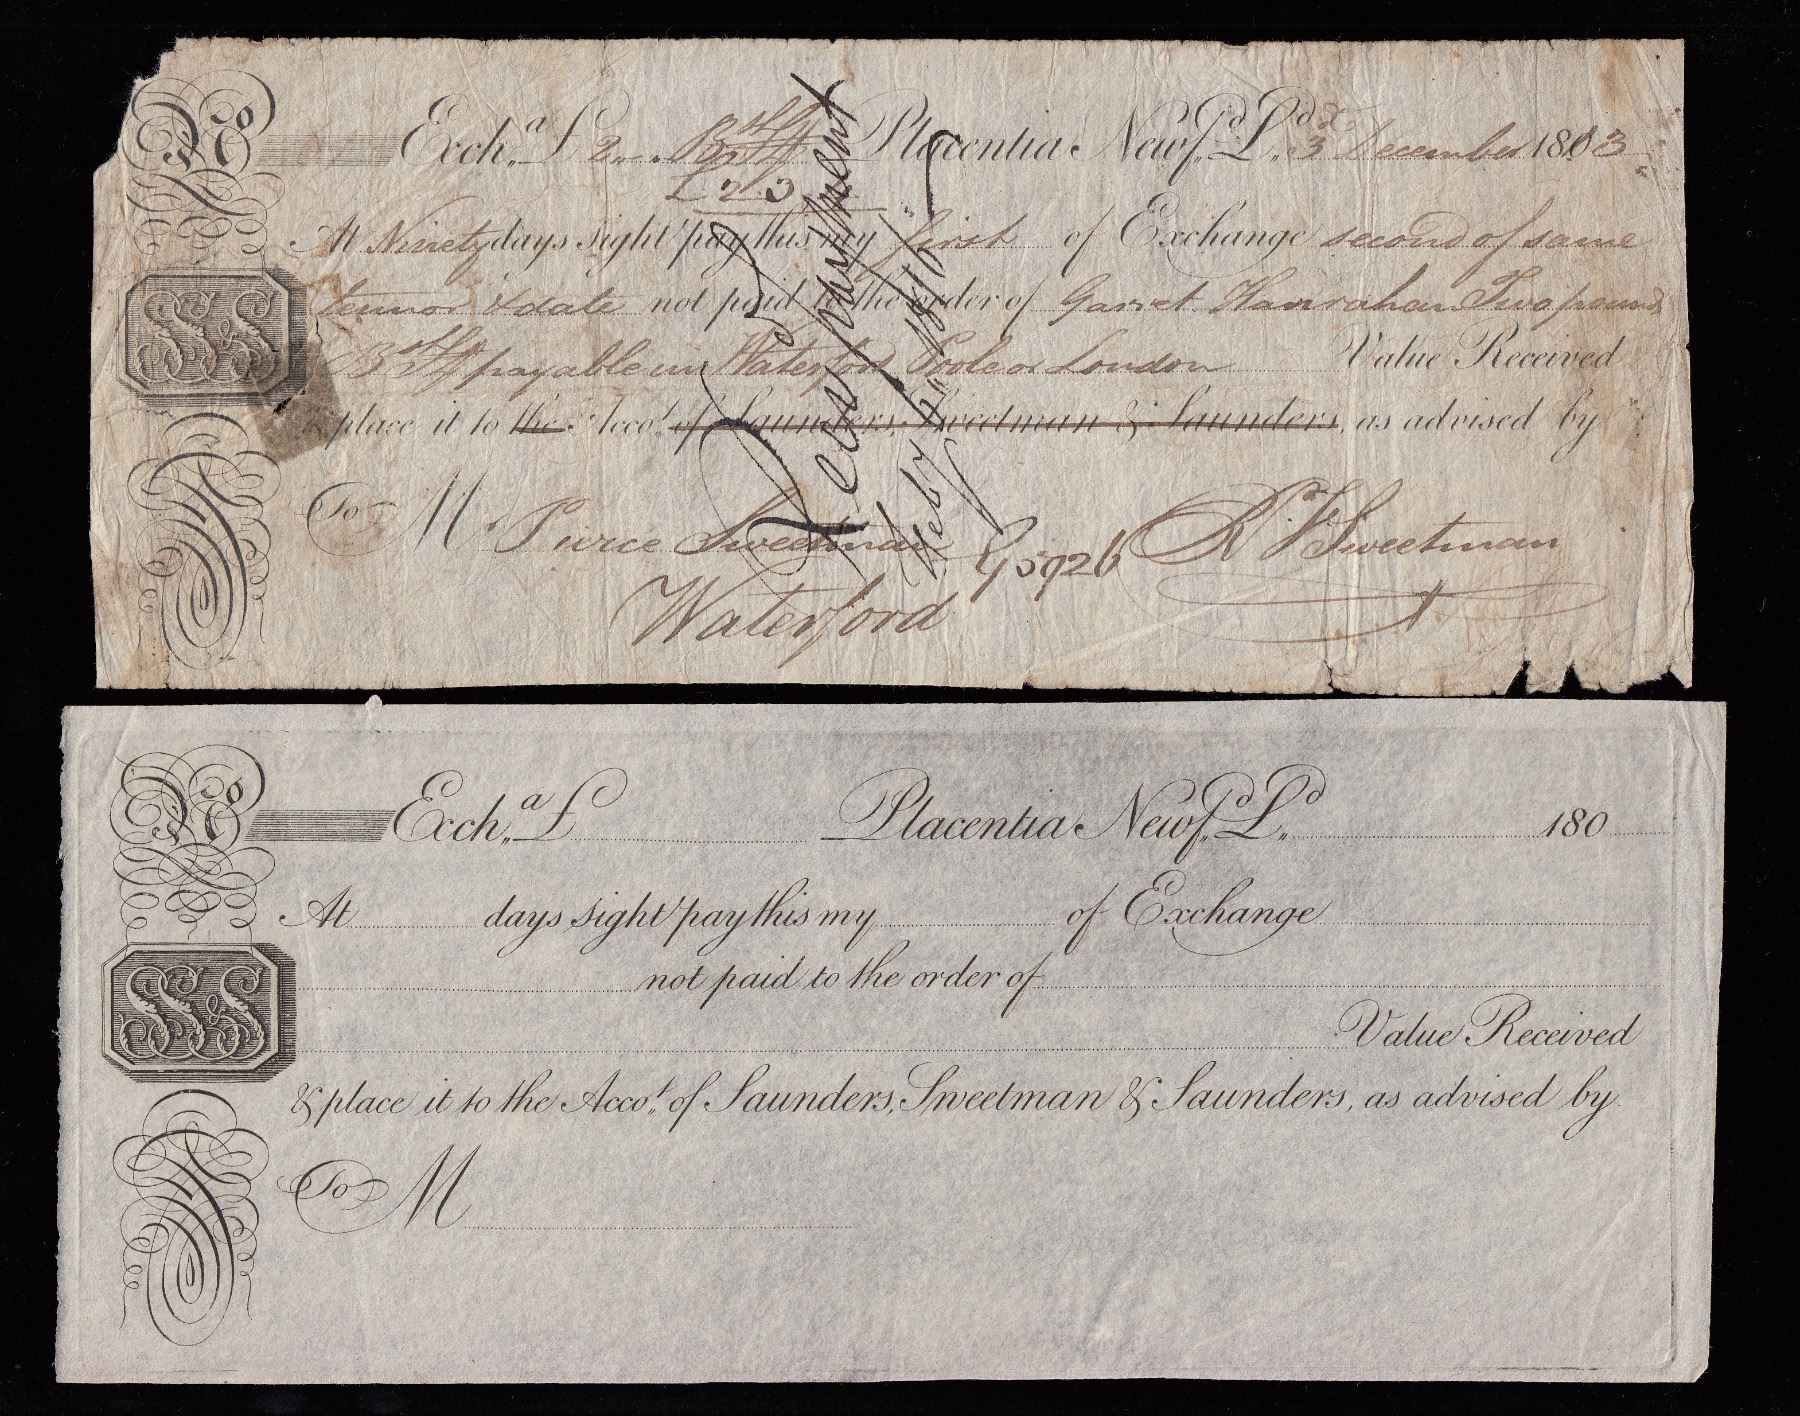 No Exch,,a £ 2,,.,, B Stg Placentia Newf,,d L,,d 3d December 1813
£2.3
At Ninety days sight pay this my first of Exchange second of same
tennor & date not paid to the order of Garret Hanrahan Two pounds
B Stg payable in Waterford Poole or London Value Received
& place it to the Acco,,t of Saunders, Sweetman & Saunders, as advised by
To Mr Pierce Sweetman
Waterford
G5926
R F Sweetman
Recd payment
Feby 6, 1816
S & S
No Exch,,a £ Placentia Newf,,d L,,d 180
At days sight pay this my of Exchange
not paid to the order of
Value Received
& place it to the Acco,,t of Saunders, Sweetman & Saunders, as advised by
To M
S & S